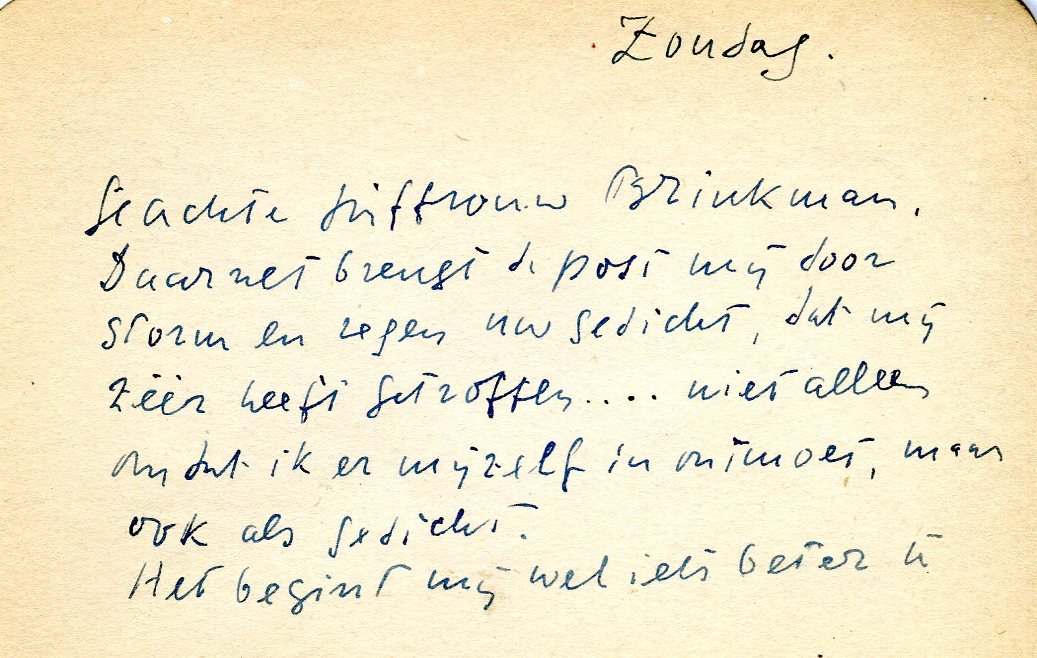 Zondag.
Geachte Juffrouw Brinkman,
Daarnet brengt de post mij door
storm en regen uw gedicht, dat mij
zéér heeft getroffen.... niet alleen
omdat ik er mijzelf in ontmoet, maar
ook als gedicht.
Het begint mij wel iets beter te